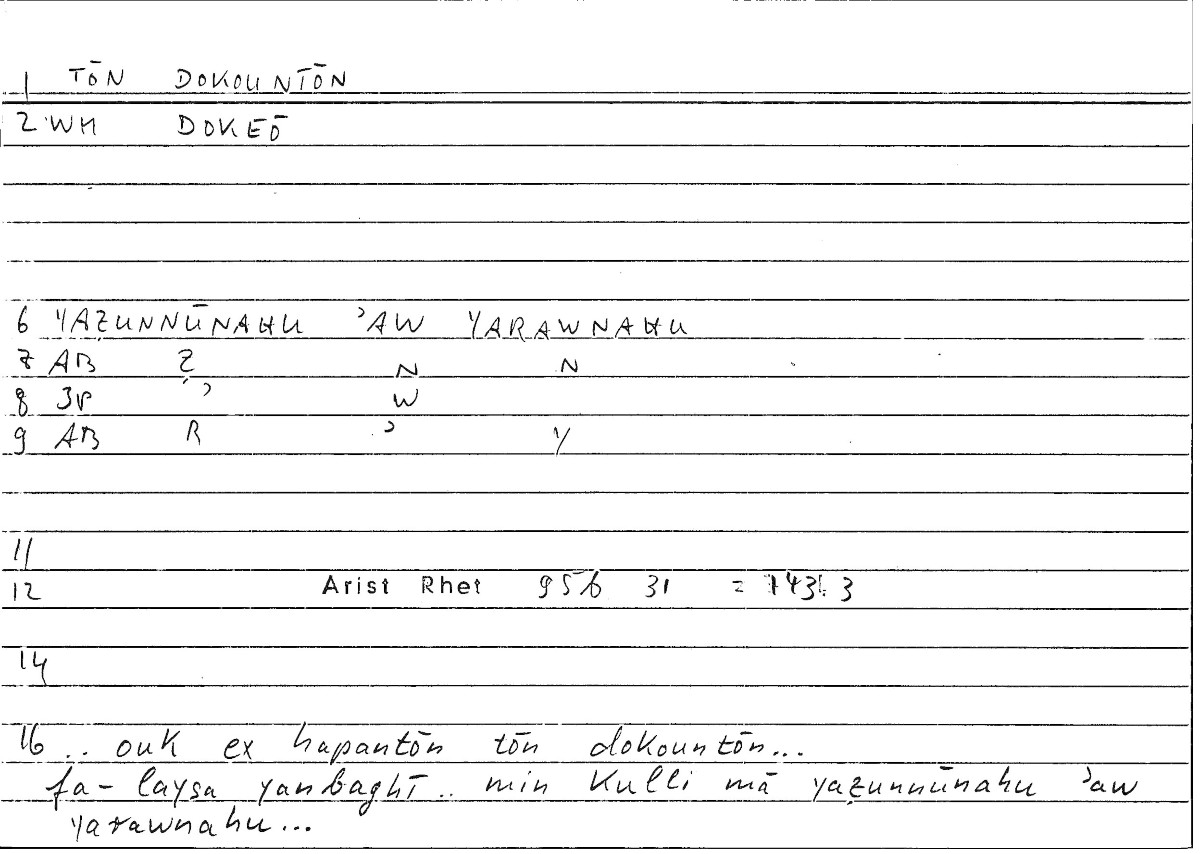 1 TŌN DOKOUNTŌN
2 WH DOKEŌ
6 YAẒUNNŪNAHU ʾAW YARAWNAHU
7 AB Ẓ N N
8 3V ʾ W
9 AB R ʾ Y
11
12 Arist Rhet 95b 31 = 143. 3
14
16 .. ouk ex hapantōn tōn dokountōn...
fa- laysa yanbaghī .. min kulli mā yaẓunnūnahu ʾaw
yarawnahu...